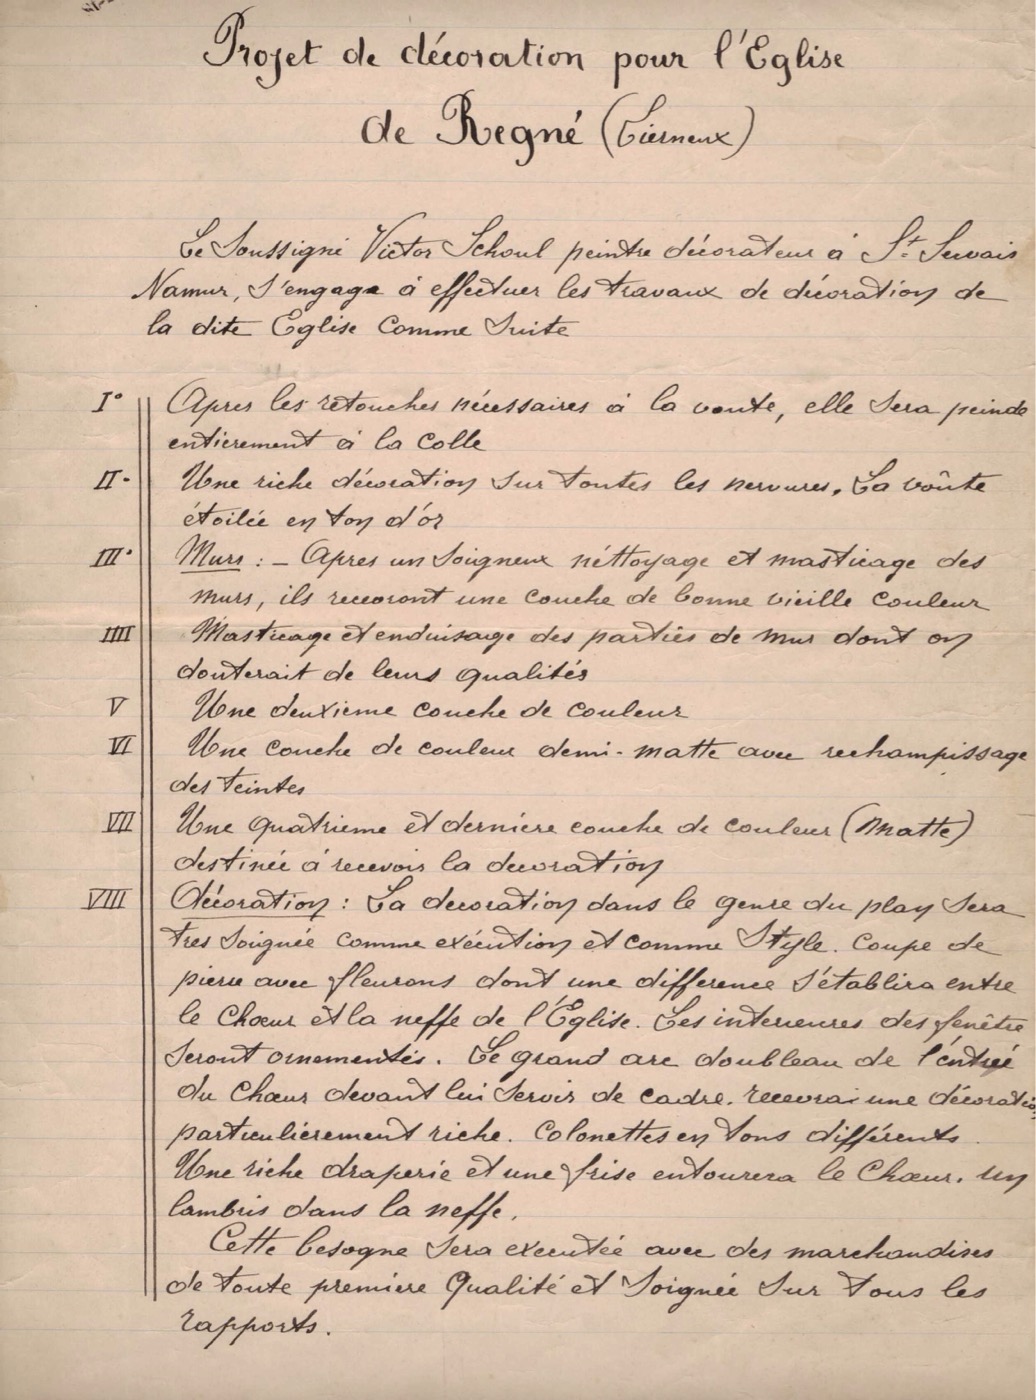 Projet de décoration pour l'Eglise
de Regné (Tierneux)
Le Soussigné Victor Schoul peintre décorateur à St Servais
Namur, s'engage à effectuer les travaux de décoration de
la dite Eglise comme suite
I° Apres les retouches nécessaires à la voute, elle sera peinde
entierement à la colle
II- Une riche décoration sur toutes les nervures. La voûte
étoilée en ton d'or
III° Murs : - Apres un soigneux néttoyage et masticage des
murs, ils receoront une couche de bonne vieille couleur
IIII Masticage et enduisage des parties de mur dont on
douterait de leurs qualités
V Une deuxieme couche de couleur
VI Une couche de couleur demi-matte avec rechampissage
des teintes
VII Une quatrieme et derniere couche de couleur (matte)
destinée à recevoir la decoration
VIII Décoration : La decoration dans le genre du plan sera
tres soignée comme exécution et comme style. Coupe de
pierre avec fleurons dont une difference s'établira entre
le Chœur et la neffe de l'Église. Les interieures des fenêtre
seront ornementés. Le grand arc doubleau de l'entrée
du Chœur devant lui servir de cadre. recevrai une décoratio
particulièrement riche. Colonettes en tons différents.
Une riche draperie et une frise entourera le Chœur. un
lambris dans la neffe.
Cette besogne sera executée avec des marchandises
de toute premiere Qualité et soignée sur tous les
rapports.